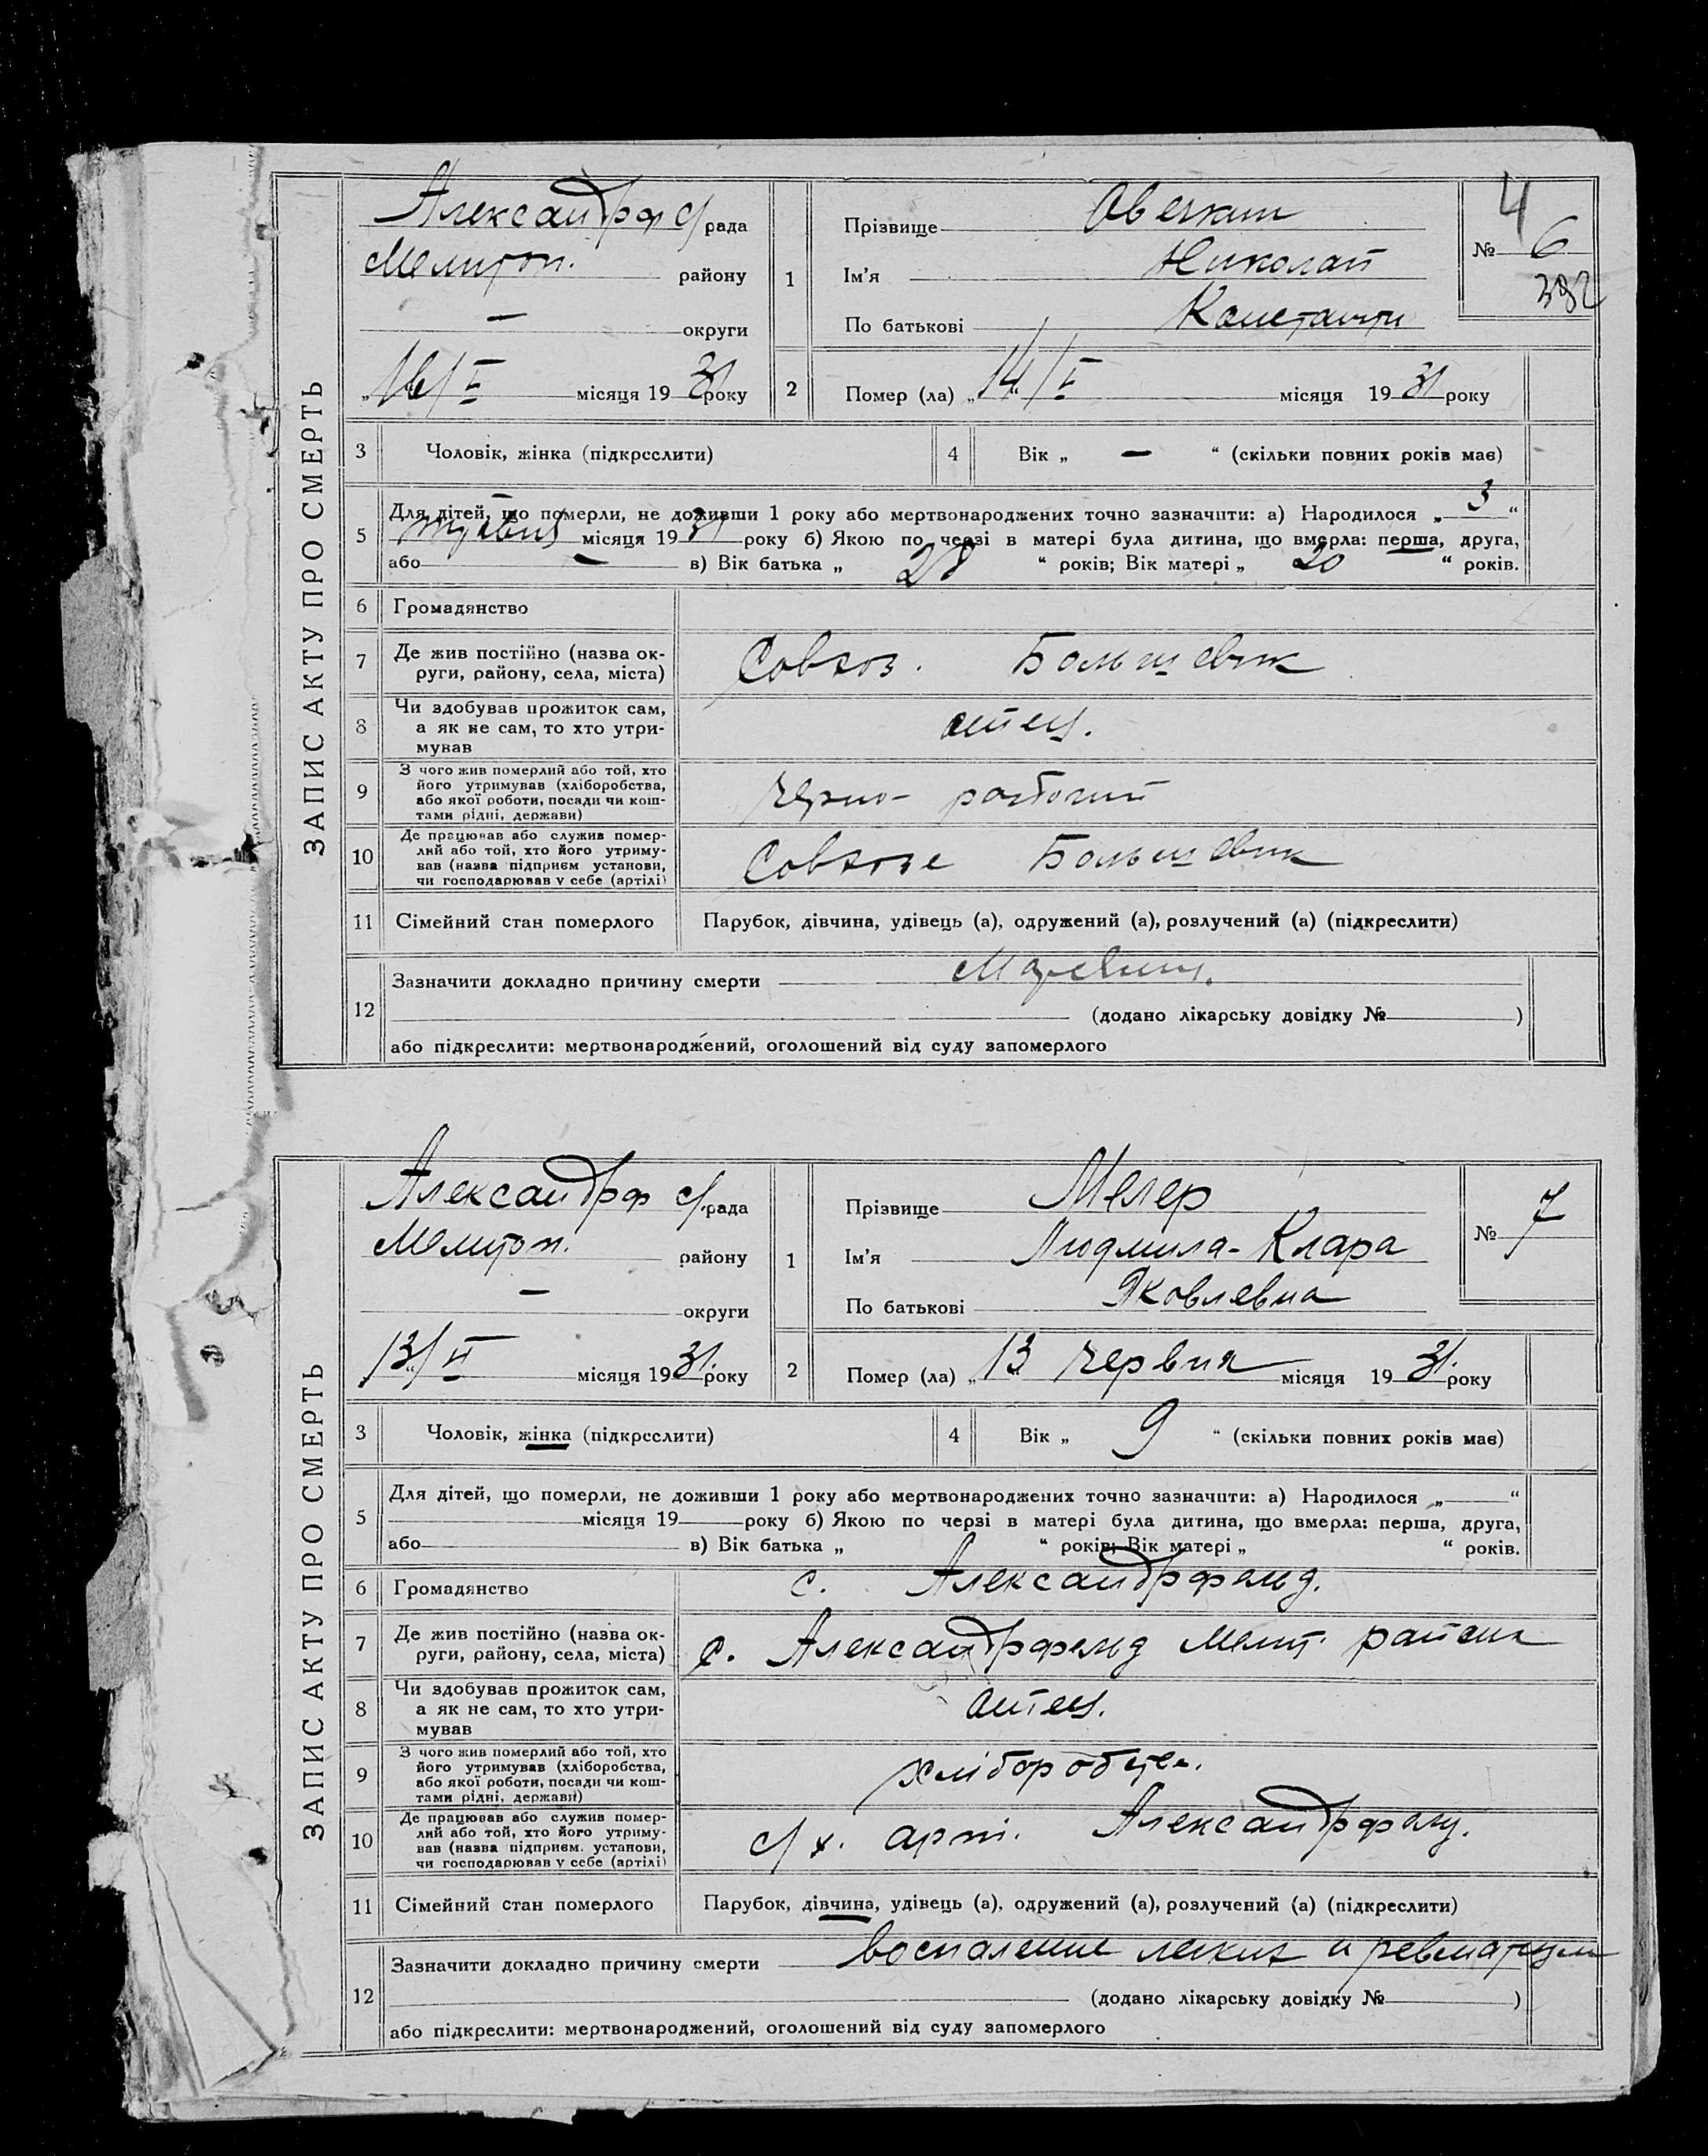 ЗАПИС АКТУ ПРО СМЕРТЬ
Александрф с/рада
Мелитоп. району
— округи
„16/I місяця 1931 року
1
Прізвище Аверкин
Ім'я Николай
По батькові Константи
4
№ 6
392
2 Помер (ла) „14/I місяця 1931 року
3 Чоловік, жінка (підкреслити)
4 Вік „ — “ (скільки повних років має)
5 Для дітей, що померли, не доживши 1 року або мертвонароджених точно зазначити: а) Народилося „3“
місяця 1931 року б) Якою по черзі в матері була дитина, що вмерла: перша, друга,
або — в) Вік батька „ 28 “ років; Вік матері „ 20 “ років.
6 Громадянство
7 Де жив постійно (назва ок-
руги, району, села, міста)
Совхоз. Большевик
8 Чи здобував прожиток сам,
а як не сам, то хто утри-
мував
отец.
9 З чого жив померлий або той, хто
його утримував (хліборобства,
або якої роботи, посади чи кош-
тами рідні, держави)
черно-рабочий
10 Де працював або служив помер-
лий або той, хто його утриму-
вав (назва підприєм установи,
чи господарював у себе (артілі)
Совхозе Большевик
11 Сімейний стан померлого
Парубок, дівчина, удівець (а), одружений (а), розлучений (а) (підкреслити)
12 Зазначити докладно причину смерти
(додано лікарську довідку № )
або підкреслити: мертвонароджений, оголошений від суду запомерлого
ЗАПИС АКТУ ПРО СМЕРТЬ
Александрф с/.рада
Мелитоп. району
— округи
13/VI місяця 1931. року
1
Прізвище Мегер
Ім'я Людмила-Клара
По батькові Яковлевна
№ 7
2 Помер (ла) „13 червня місяця 1931. року
3 Чоловік, жінка (підкреслити)
4 Вік „ 9 “ (скільки повних років має)
5 Для дітей, що померли, не доживши 1 року або мертвонароджених точно зазначити: а) Народилося „ “
місяця 19 року б) Якою по черзі в матері була дитина, що вмерла: перша, друга,
або в) Вік батька „ “ років; Вік матері „ “ років.
6 Громадянство
с. Александрфельд.
7 Де жив постійно (назва ок-
руги, району, села, міста)
с. Александрфельд Мелит. района
8 Чи здобував прожиток сам,
а як не сам, то хто утри-
мував
отец.
9 З чого жив померлий або той, хто
його утримував (хліборобства,
або якої роботи, посади чи кош-
тами рідні, держави)
хліборобств.
10 Де працював або служив помер-
лий або той, хто його утриму-
вав (назва підприєм. установи,
чи господарював у себе (артілі)
с/х. арт. Александрфельд.
11 Сімейний стан померлого
Парубок, дівчина, удівець (а), одружений (а), розлучений (а) (підкреслити)
12 Зазначити докладно причину смерти воспаление легких и ревматизм
(додано лікарську довідку № )
або підкреслити: мертвонароджений, оголошений від суду запомерлого